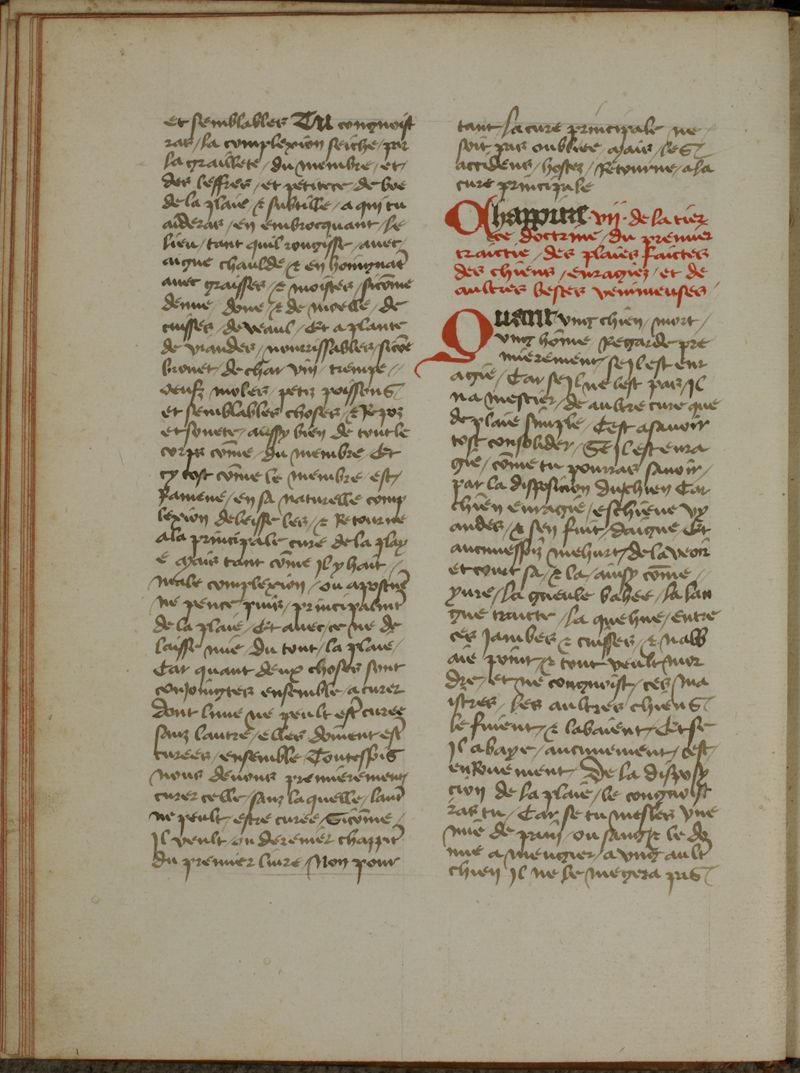 et semblables Tu congnoist
ras / la complexion seiche / par
la graillete / du membre / et /
des leffres / et petitece / de boe
de la plaie / & subtille / a qui tu
aideras / en embrocquant / le
lieu / tant quil rougisse / auec /
aigue chaulde & en hoingnāt
auec graisses / & moistes / sicōme
de nue / doue / & de nicelle / de
cuisses / de veaul / Et a plante
de viandes / nourrissables / sicōe
brouet / de char viii / trempe /
oeufz moles / petiz poissons
et semblables choses / & Repoz
et souete / aussy bien de tout le
corps cōme / du membre / Et
cy tost cōme le membre / est /
Ramene / en sa naturelle comp
lexion deleisse les / & Retourne
a la principale cure de la play
e / Mais tant cōme il y hait /
male complexion / ou apostue
ne pence puis / principalmēt
de la plaie / Et auec / ce ne de
laisse mie / du tout / la plaie /
Car quant deux choses sont
conjoingtes ensemble / a curer
dont lune ne peult estʳ curee
sanz lautre / elles doiuent estʳ
curees / ensemble / Touteffois
nous deuons premierement
curer celle / sanz la quelle / lautʳ
ne peult / estre curee / Sicōme /
Il veult / ou derenier chappitʳ
du premier liure / Non pour
tant / la cure principale ne /
soit pas oubliee / Mais / les
accidens / hostez / Retourne / a la
cure principale
Chappitre vii · de la tier
ce doctrine / du premier
traictie / des plaies Faictes
des chiens / enragiez / et de
aultres bestes venimeuses /
Quant vng chien / mort /
vng hōme Regarde pre
mierement / se il est enr
agie / Car se il ne lest pas / Il
na mestier / de aultre cure que
de plaie simple / Cest a sauoir
tost consolider / Se il est enra
gie / cōme tu pourras sauoir /
par la disposicion du chien Car
chien enragie / eschieue vy
andes / & sen fuit / daigue Et
aucuneffoiz mehurt / de la veoir
et court sa / & la / ainsy cōme /
yure / la gueule bahee / la lan
gue traicte / la quehue / entre
ces jambes & cuisses / & nabb
aie point / & tout veult mor
dre / et ne congnoist / ces ma
istres / Les aultres chiens
le fuient / & labaient / Et se
Il abaye / aucunement / cest /
enRouement / De la disposy
cion de la plaie / le congnoist
ras tu / Car se tu mesles vne
mie de pain / ou sang / & le do
nne a mengier / a vng aultʳ
chien Il ne le mēgera pas